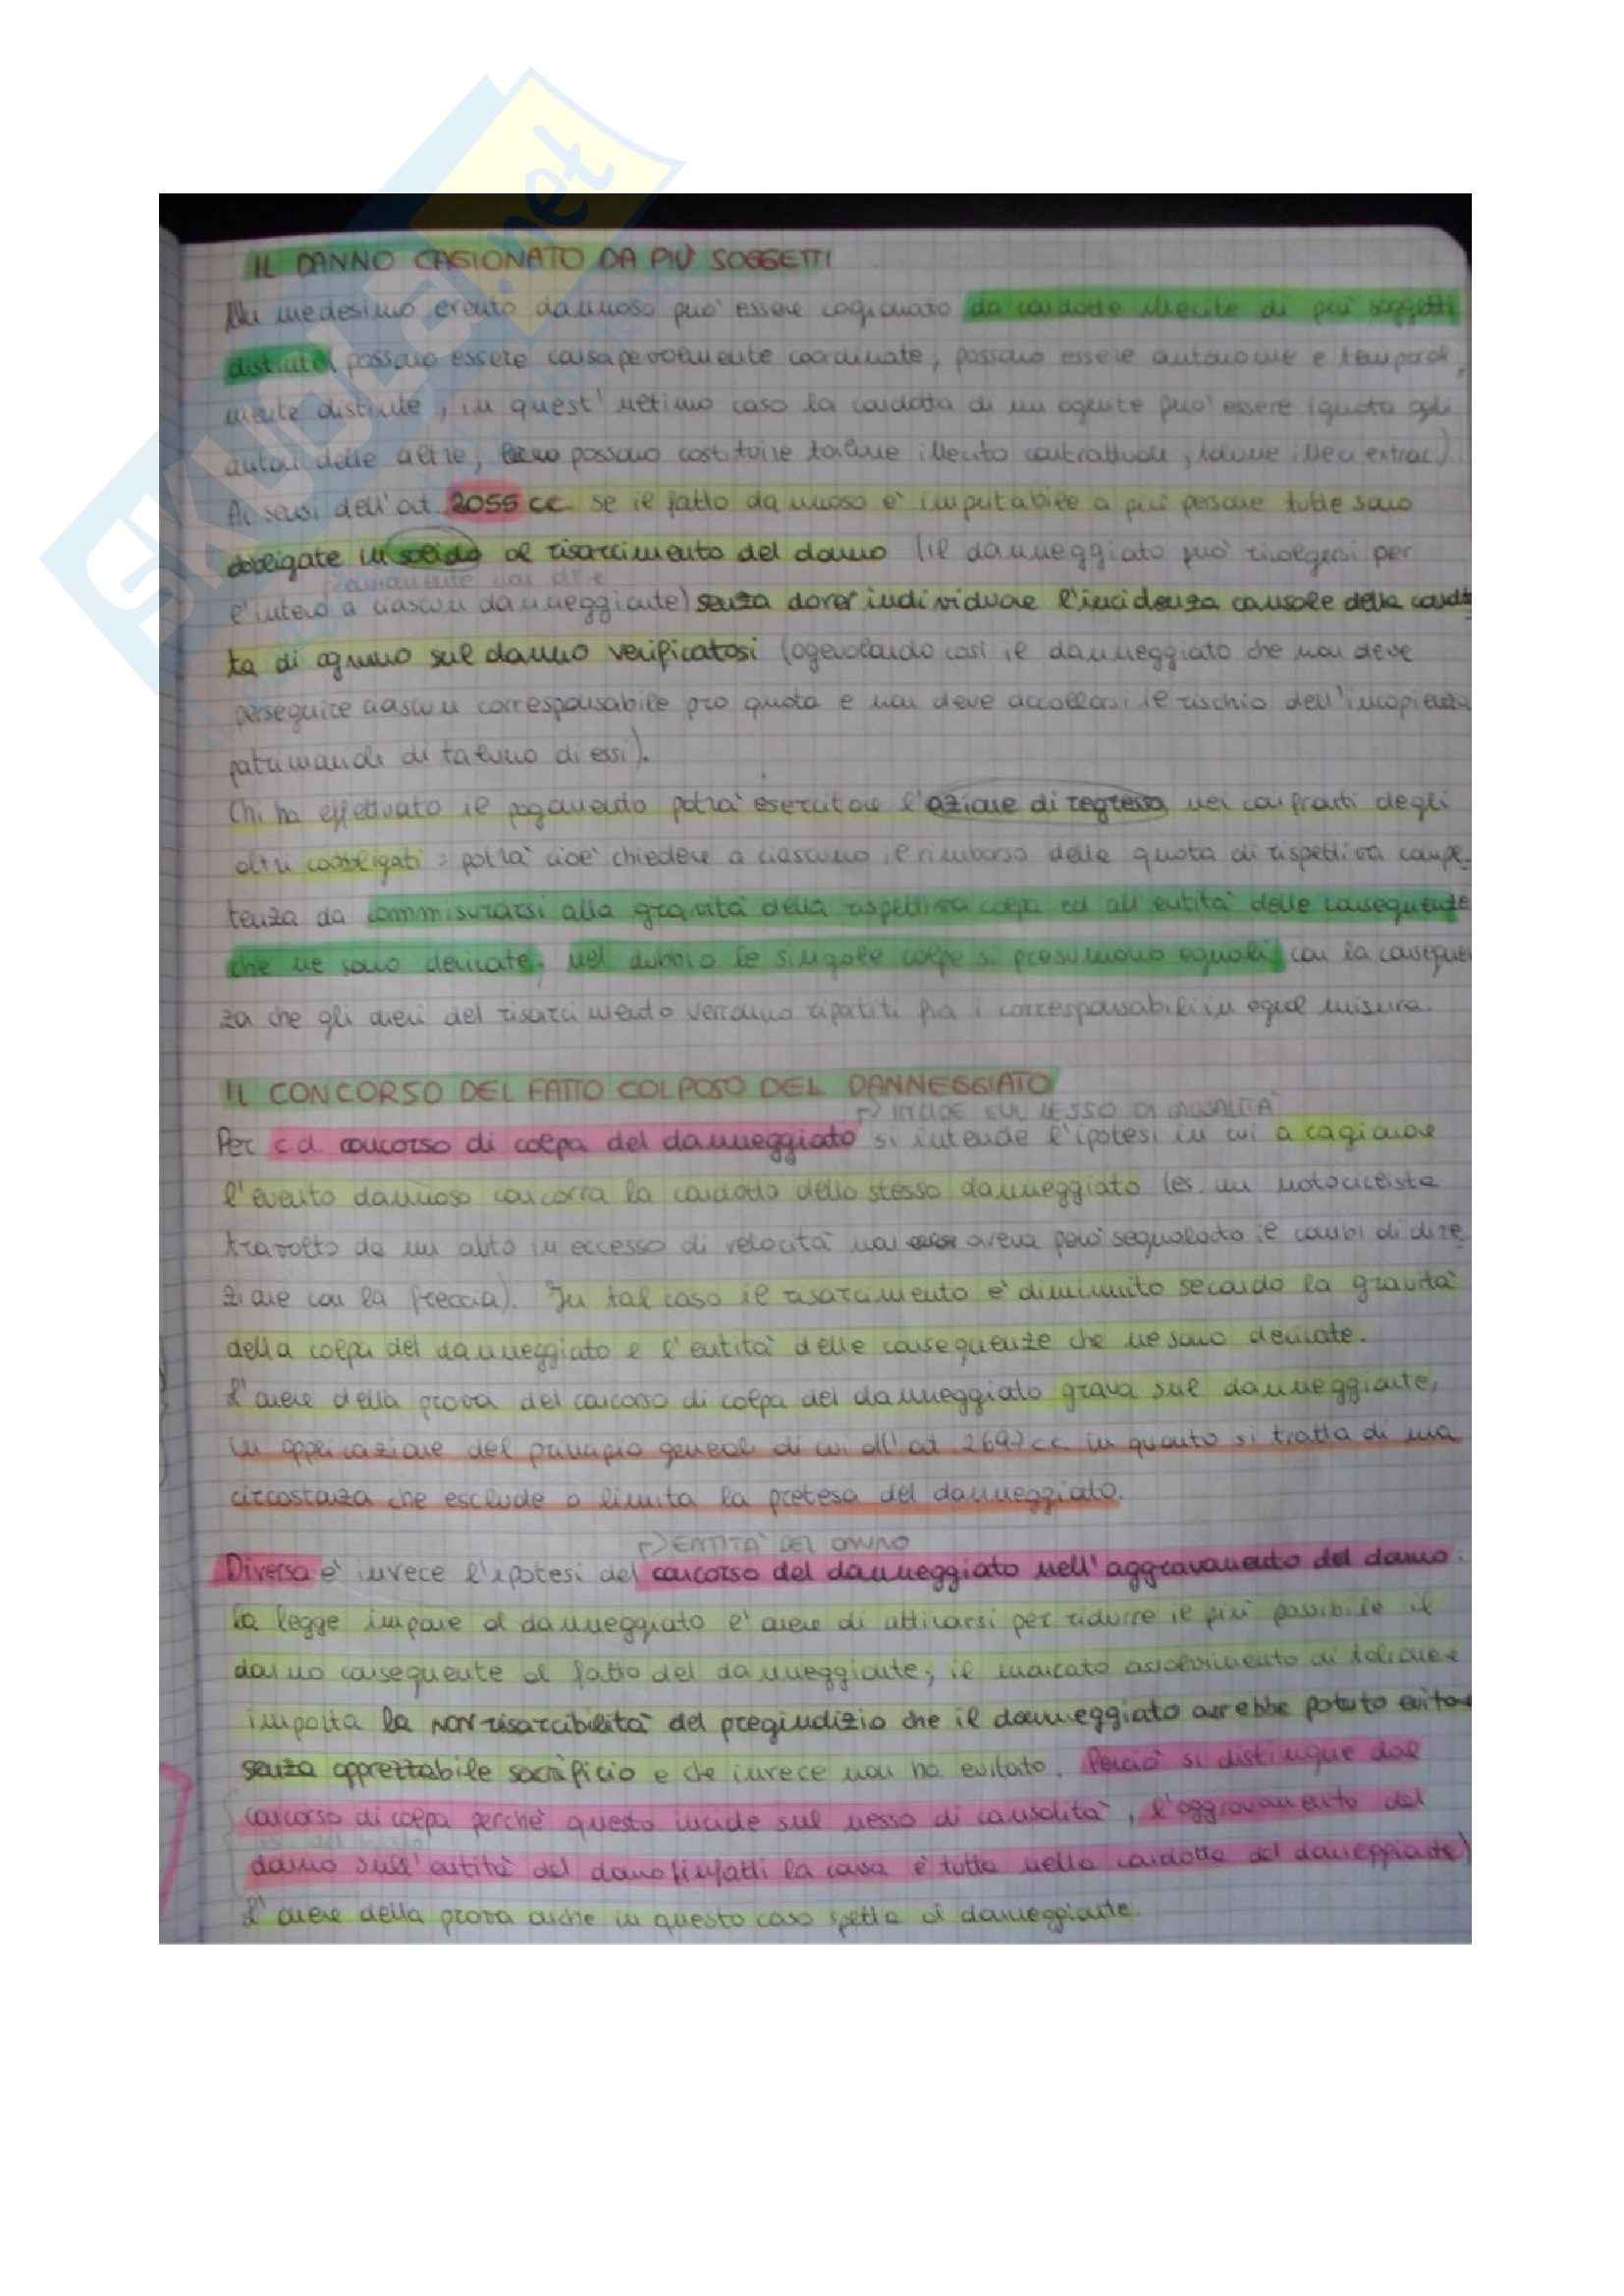 SKUOLA.net
IL DANNO CAGIONATO DA PIÙ SOGGETTI
Un medesimo evento dannoso può essere cagionato da condotte illecite di più soggetti
distinte (possono essere consapevolmente coordinate, possono essere autonome e temporal,
mente distinte, in quest'ultimo caso la condotta di un agente può essere ignota agli
autori delle altre, possono costituire talune illecito contrattuale, talune illeci extrac)
Ai sensi dell'art. 2055 cc se il fatto dannoso è imputabile a più persone tutte sono
obbligate in solido al risarcimento del danno (il danneggiato può rivolgersi per
l'intero a ciascun danneggiante) senza dover individuare l'incidenza causale della condot
ta di ognuno sul danno verificatosi (agevolando così il danneggiato che non deve
perseguire ciascun corresponsabile pro quota e non deve accollarsi il rischio dell'incapienza
patrimoniale di taluno di essi).
Chi ha effettuato il pagamento potrà esercitare l'azione di regresso nei confronti degli
altri coobbligati: potrà cioè chiedere a ciascuno il rimborso della quota di rispettiva compe-
tenza da commisurarsi alla gravità della rispettiva colpa ed all'entità delle conseguenze
che ne sono derivate; nel dubbio le singole colpe si presumono eguali con la conseguen
za che gli oneri del risarcimento verranno ripartiti fra i corresponsabili in egual misura.
IL CONCORSO DEL FATTO COLPOSO DEL DANNEGGIATO
→ INCIDE SUL NESSO DI CAUSALITÀ
Per c.d. concorso di colpa del danneggiato si intende l'ipotesi in cui a cagionare
l'evento dannoso concorra la condotta dello stesso danneggiato (es. un motociclista
travolto da un auto in eccesso di velocità non aveva però segnalato il cambi di dire
zione con la freccia). In tal caso il risarcimento è diminuito secondo la gravità
della colpa del danneggiato e l'entità delle conseguenze che ne sono derivate.
L'onere della prova del concorso di colpa del danneggiato grava sul danneggiante,
in applicazione del principio generale di cui all'art 2697 cc in quanto si tratta di una
circostanza che esclude o limita la pretesa del danneggiato.
→ ENTITÀ DEL DANNO
Diversa è invece l'ipotesi del concorso del danneggiato nell'aggravamento del danno:
la legge impone al danneggiato l'onere di attivarsi per ridurre il più possibile il
danno conseguente al fatto del danneggiante; il mancato assolvimento di tale onere
importa la non risarcibilità del pregiudizio che il danneggiato avrebbe potuto evitare
senza apprezzabile sacrificio e che invece non ha evitato. Perciò si distingue dal
concorso di colpa perché questo incide sul nesso di causalità, l'aggravamento del
danno sull'entità del danno (infatti la causa è tutta nella condotta del danneggiante)
L'onere della prova anche in questo caso spetta al danneggiante.